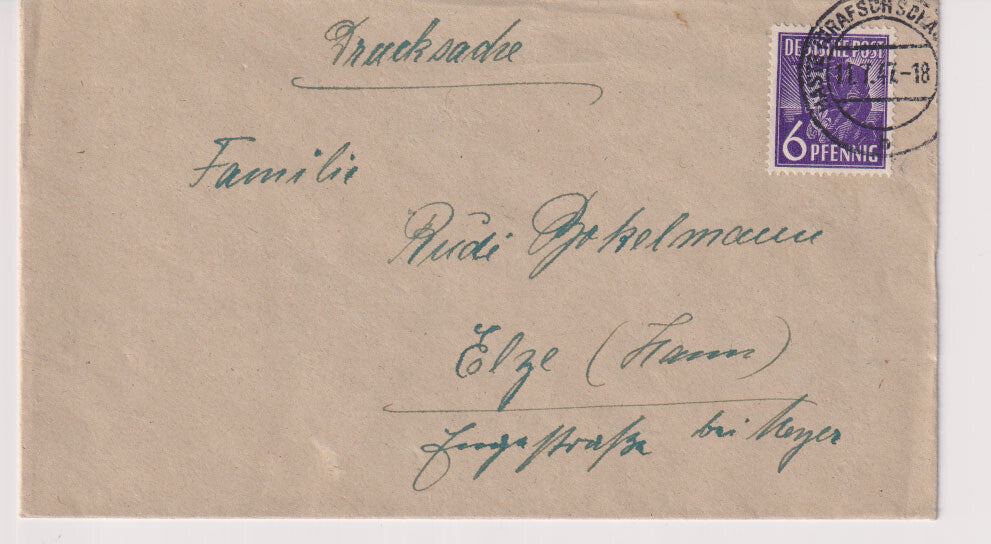 Drucksache
DEUTSCHE POST
6 PFENNIG
11.7.47.-18
Familie
Rudi Bokelmann
Elze (Hann)
Engestraße bei Meyer